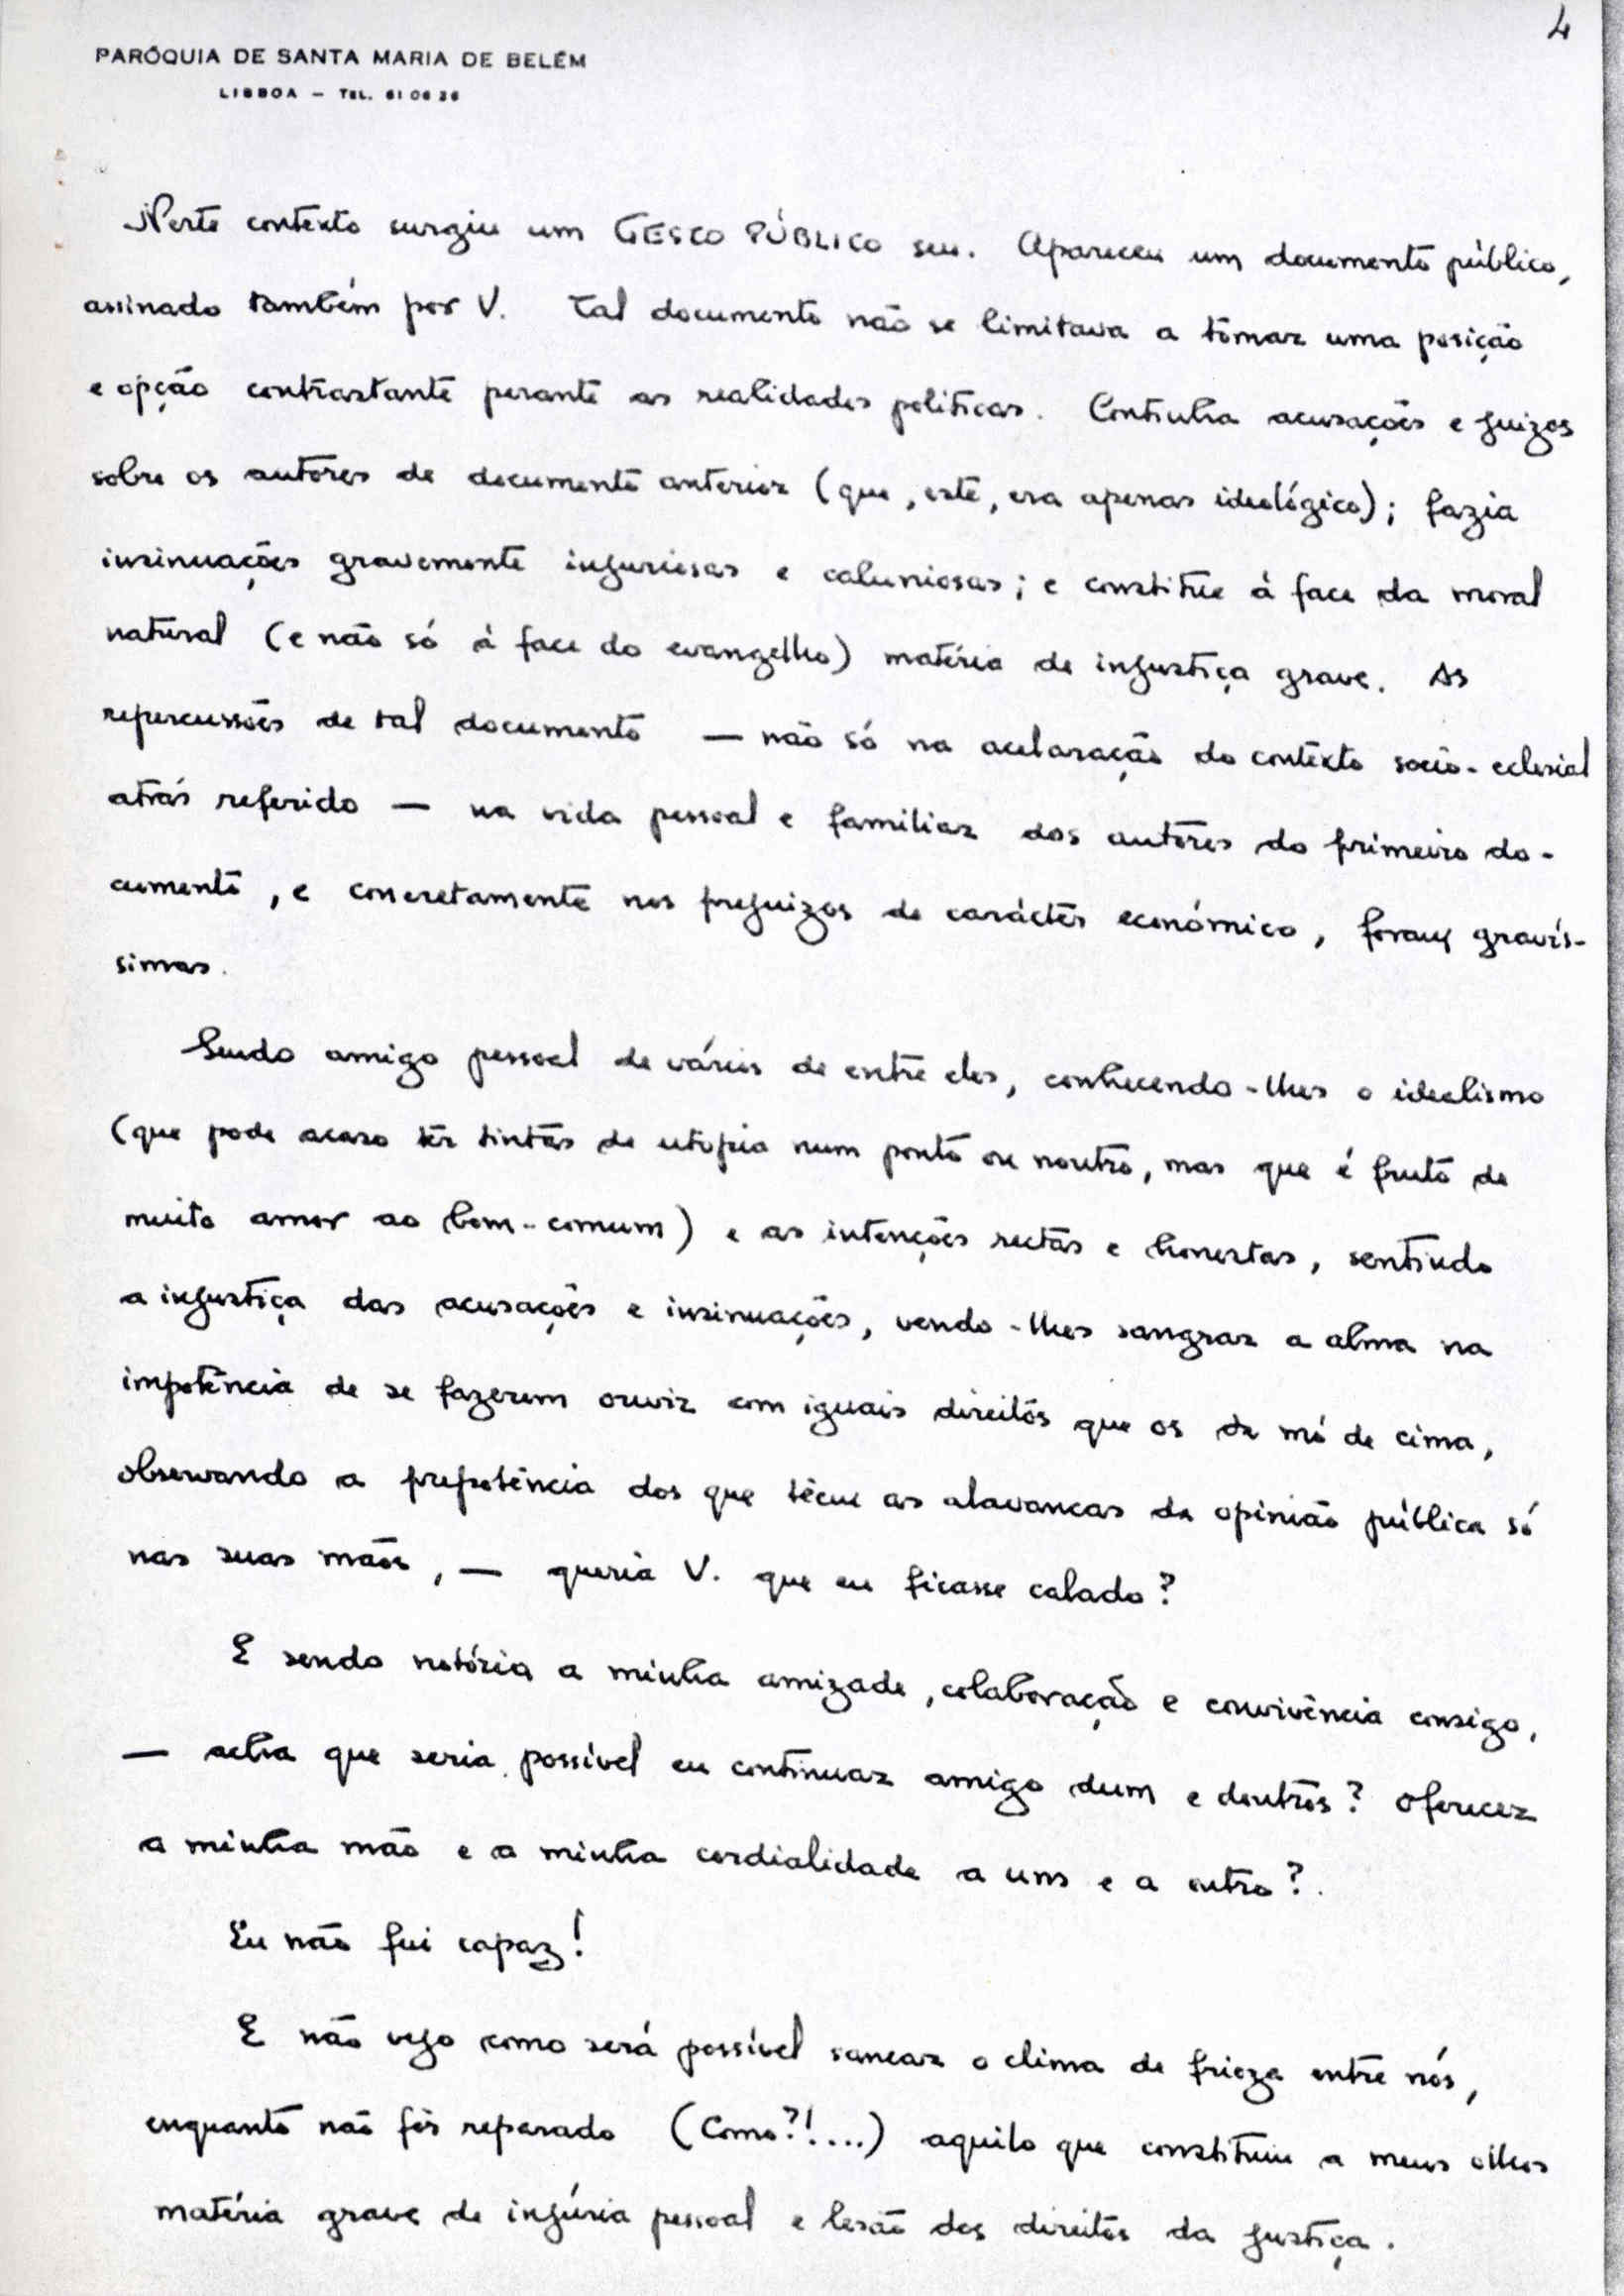 4
PARÓQUIA DE SANTA MARIA DE BELÉM
LISBOA — TEL. 61 06 26
Neste contexto surgiu um GESTO PÚBLICO seu. Apareceu um documento público,
assinado também por V. Tal documento não se limitava a tomar uma posição
e opção contrastante perante as realidades políticas. Continha acusações e juizos
sobre os autores de documento anterior (que, este, era apenas ideológico); fazia
insinuações gravemente injuriosas e caluniosas; e constitue à face da moral
natural (e não só à face do evangelho) matéria de injustiça grave. As
repercussões de tal documento — não só na aclaração do contexto socio-eclesial
atrás referido — na vida pessoal e familiar dos autores do primeiro do-
cumento, e concretamente nos prejuizos de carácter económico, foram gravís-
simas.
Sendo amigo pessoal de vários de entre eles, conhecendo-lhes o idealismo
(que pode acaso ter tintas de utopia num ponto ou noutro, mas que é fruto de
muito amor ao bem-comum) e as intenções rectas e honestas, sentindo
a injustiça das acusações e insinuações, vendo-lhes sangrar a alma na
impotência de se fazerem ouvir com iguais direitos que os da mó de cima,
observando a prepotência dos que têem as alavancas da opinião pública só
nas suas mãos, — queria V. que eu ficasse calado?
E sendo notória a minha amizade, colaboração e convivência consigo,
— acha que seria possivel eu continuar amigo dum e doutros? Oferecer
a minha mão e a minha cordialidade a uns e a outro?
Eu não fui capaz!
E não vejo como será possível sanear o clima de frieza entre nós,
enquanto não fôr reparado (Como?!....) aquilo que constituiu a meus olhos
matéria grave de injúria pessoal e lesão dos direitos da justiça.